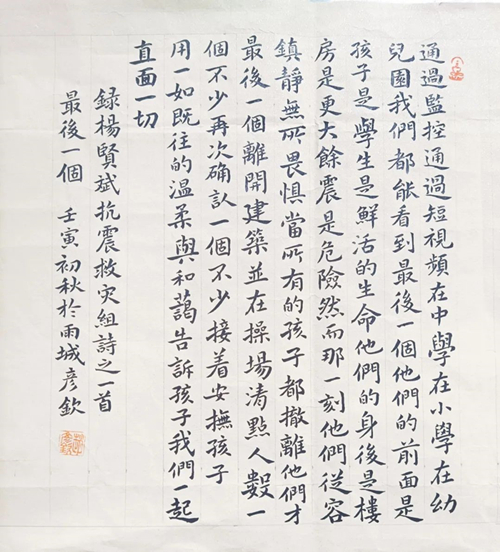 通過監控通過短視頻在中學在小學在幼
兒園我們都能看到最後一個他們的前面是
孩子是學生是鮮活的生命他們的身後是樓
房是更大餘震是危險然而那一刻他們從容
鎮靜無所畏懼當所有的孩子都撤離他們才
最後一個離開建築並在操場清點人數一
個不少再次确認一個不少接着安撫孩子
用一如既往的溫柔與和藹告訴孩子我們一起
直面一切
録楊賢斌抗震救灾組詩之一首
最後一個 壬寅初秋於雨城彦欽